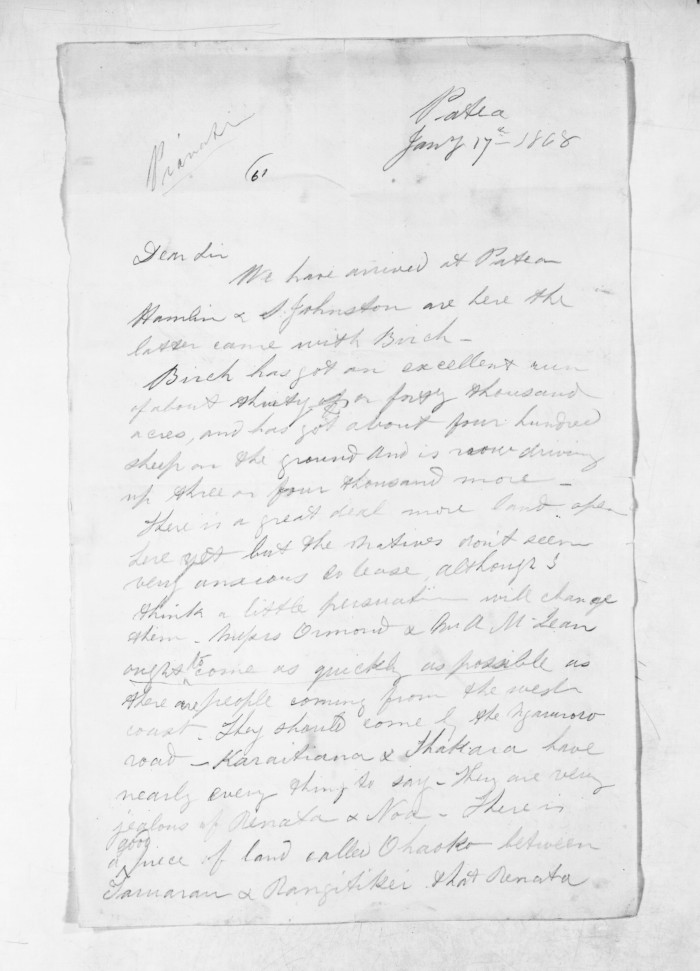 Patea
Jany 17th 1868
Private
Dear Sir
We have arrived at Patea
Hamlin & S. Johnston are here the
latter came with Birch -
Birch has got an excellent run
of about thirty or forty thousand
acres, and has got about four hundred
sheep on the ground and is now driving
up three or four thousand more -
There is a great deal more land open
here yet but the Natives don't seem
very anxious to lease, although I
think a little persuation will change
them - Messrs Ormond & McLean
ought to come as quickly as possible as
there are people coming from the west
coast. They should come by the Ngaruroro
road - Karaitiana & have
nearly every thing to say - They are very
jealous of Renata & Noa - There is
a good piece of land called Ohaoko between
& Rangitikei that Renata